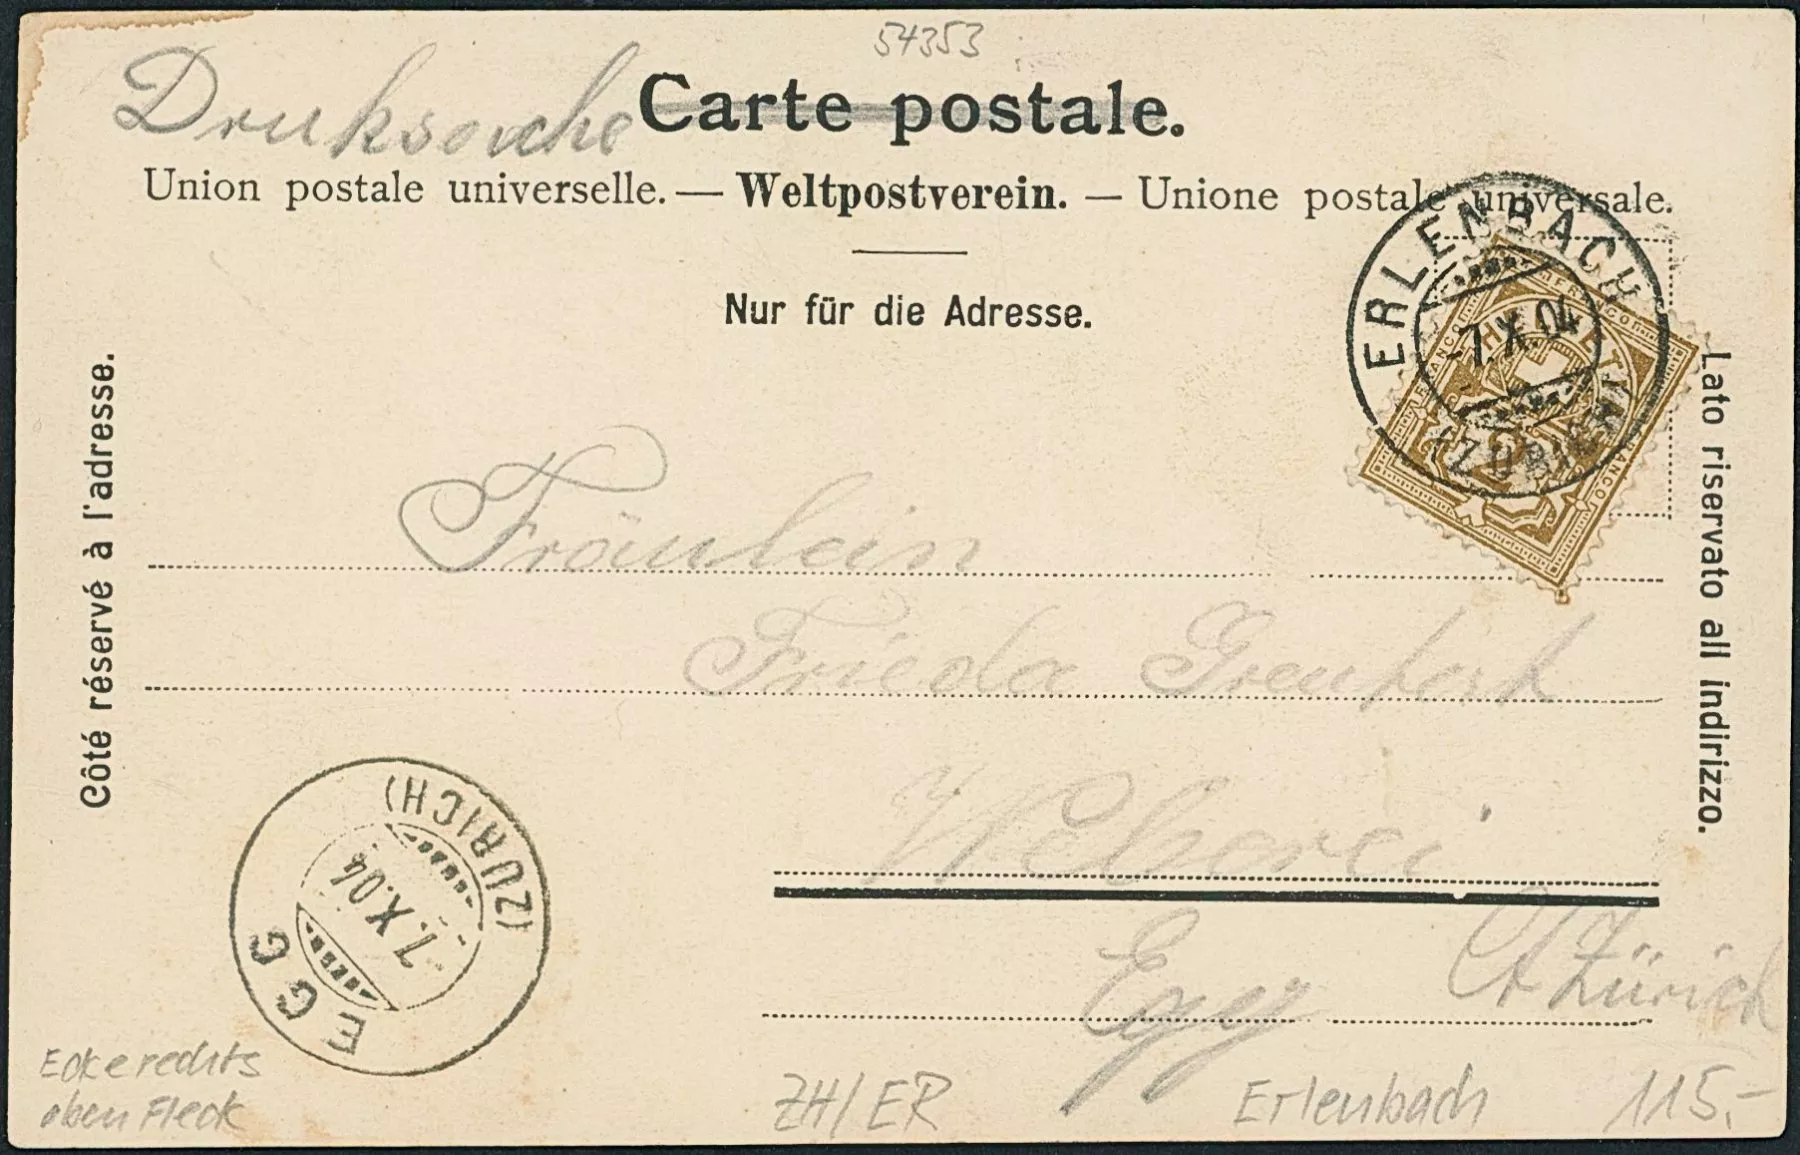 54353
Druksache
Carte postale.
Union postale universelle. — Weltpostverein. — Unione postale universale.
Nur für die Adresse.
ERLENBACH
-7.X.04
(ZÜRICH)
HELVETIA
FRANCO
2
Côté réservé à l'adresse.
Lato riservato all indirizzo.
Fräulein
Frieda
Weberei
Egg Ct Zürich
EGG
-7.X.04
(ZÜRICH)
Ecke rechts
oben Fleck
ZH/ER
Erlenbach
115.-